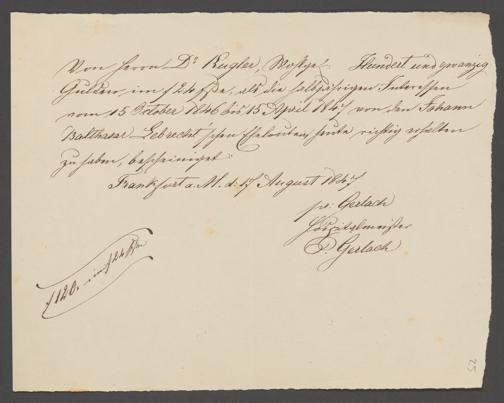 Von Herrn Dr Kugler, Wohlgeb. Hundert und zwanzig
Gulden im f 24 fße, als die halbjährigen Interessen
vom 15 October 1846 bis 15 April 1847 von den Johann
Balthasar Lebrecht'schen Eheleuten, heute richtig erhalten
zu haben, bescheiniget
Frankfurt a. M. d. 17 August 1847
pr. Gerlach
Hospitalmeister
P. Gerlach
f 120. im f 24 fße
25